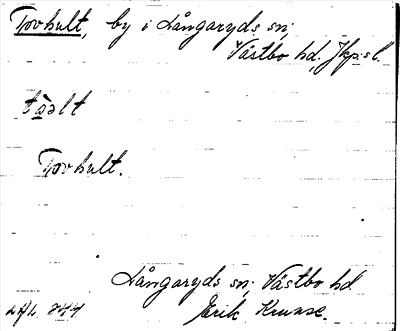 Tovhult, by i Långaryds sn,
Västbo hd, Jkp:s l.
Tovhult.
Långaryds sn; Västbo hd
Erik Kruuse.